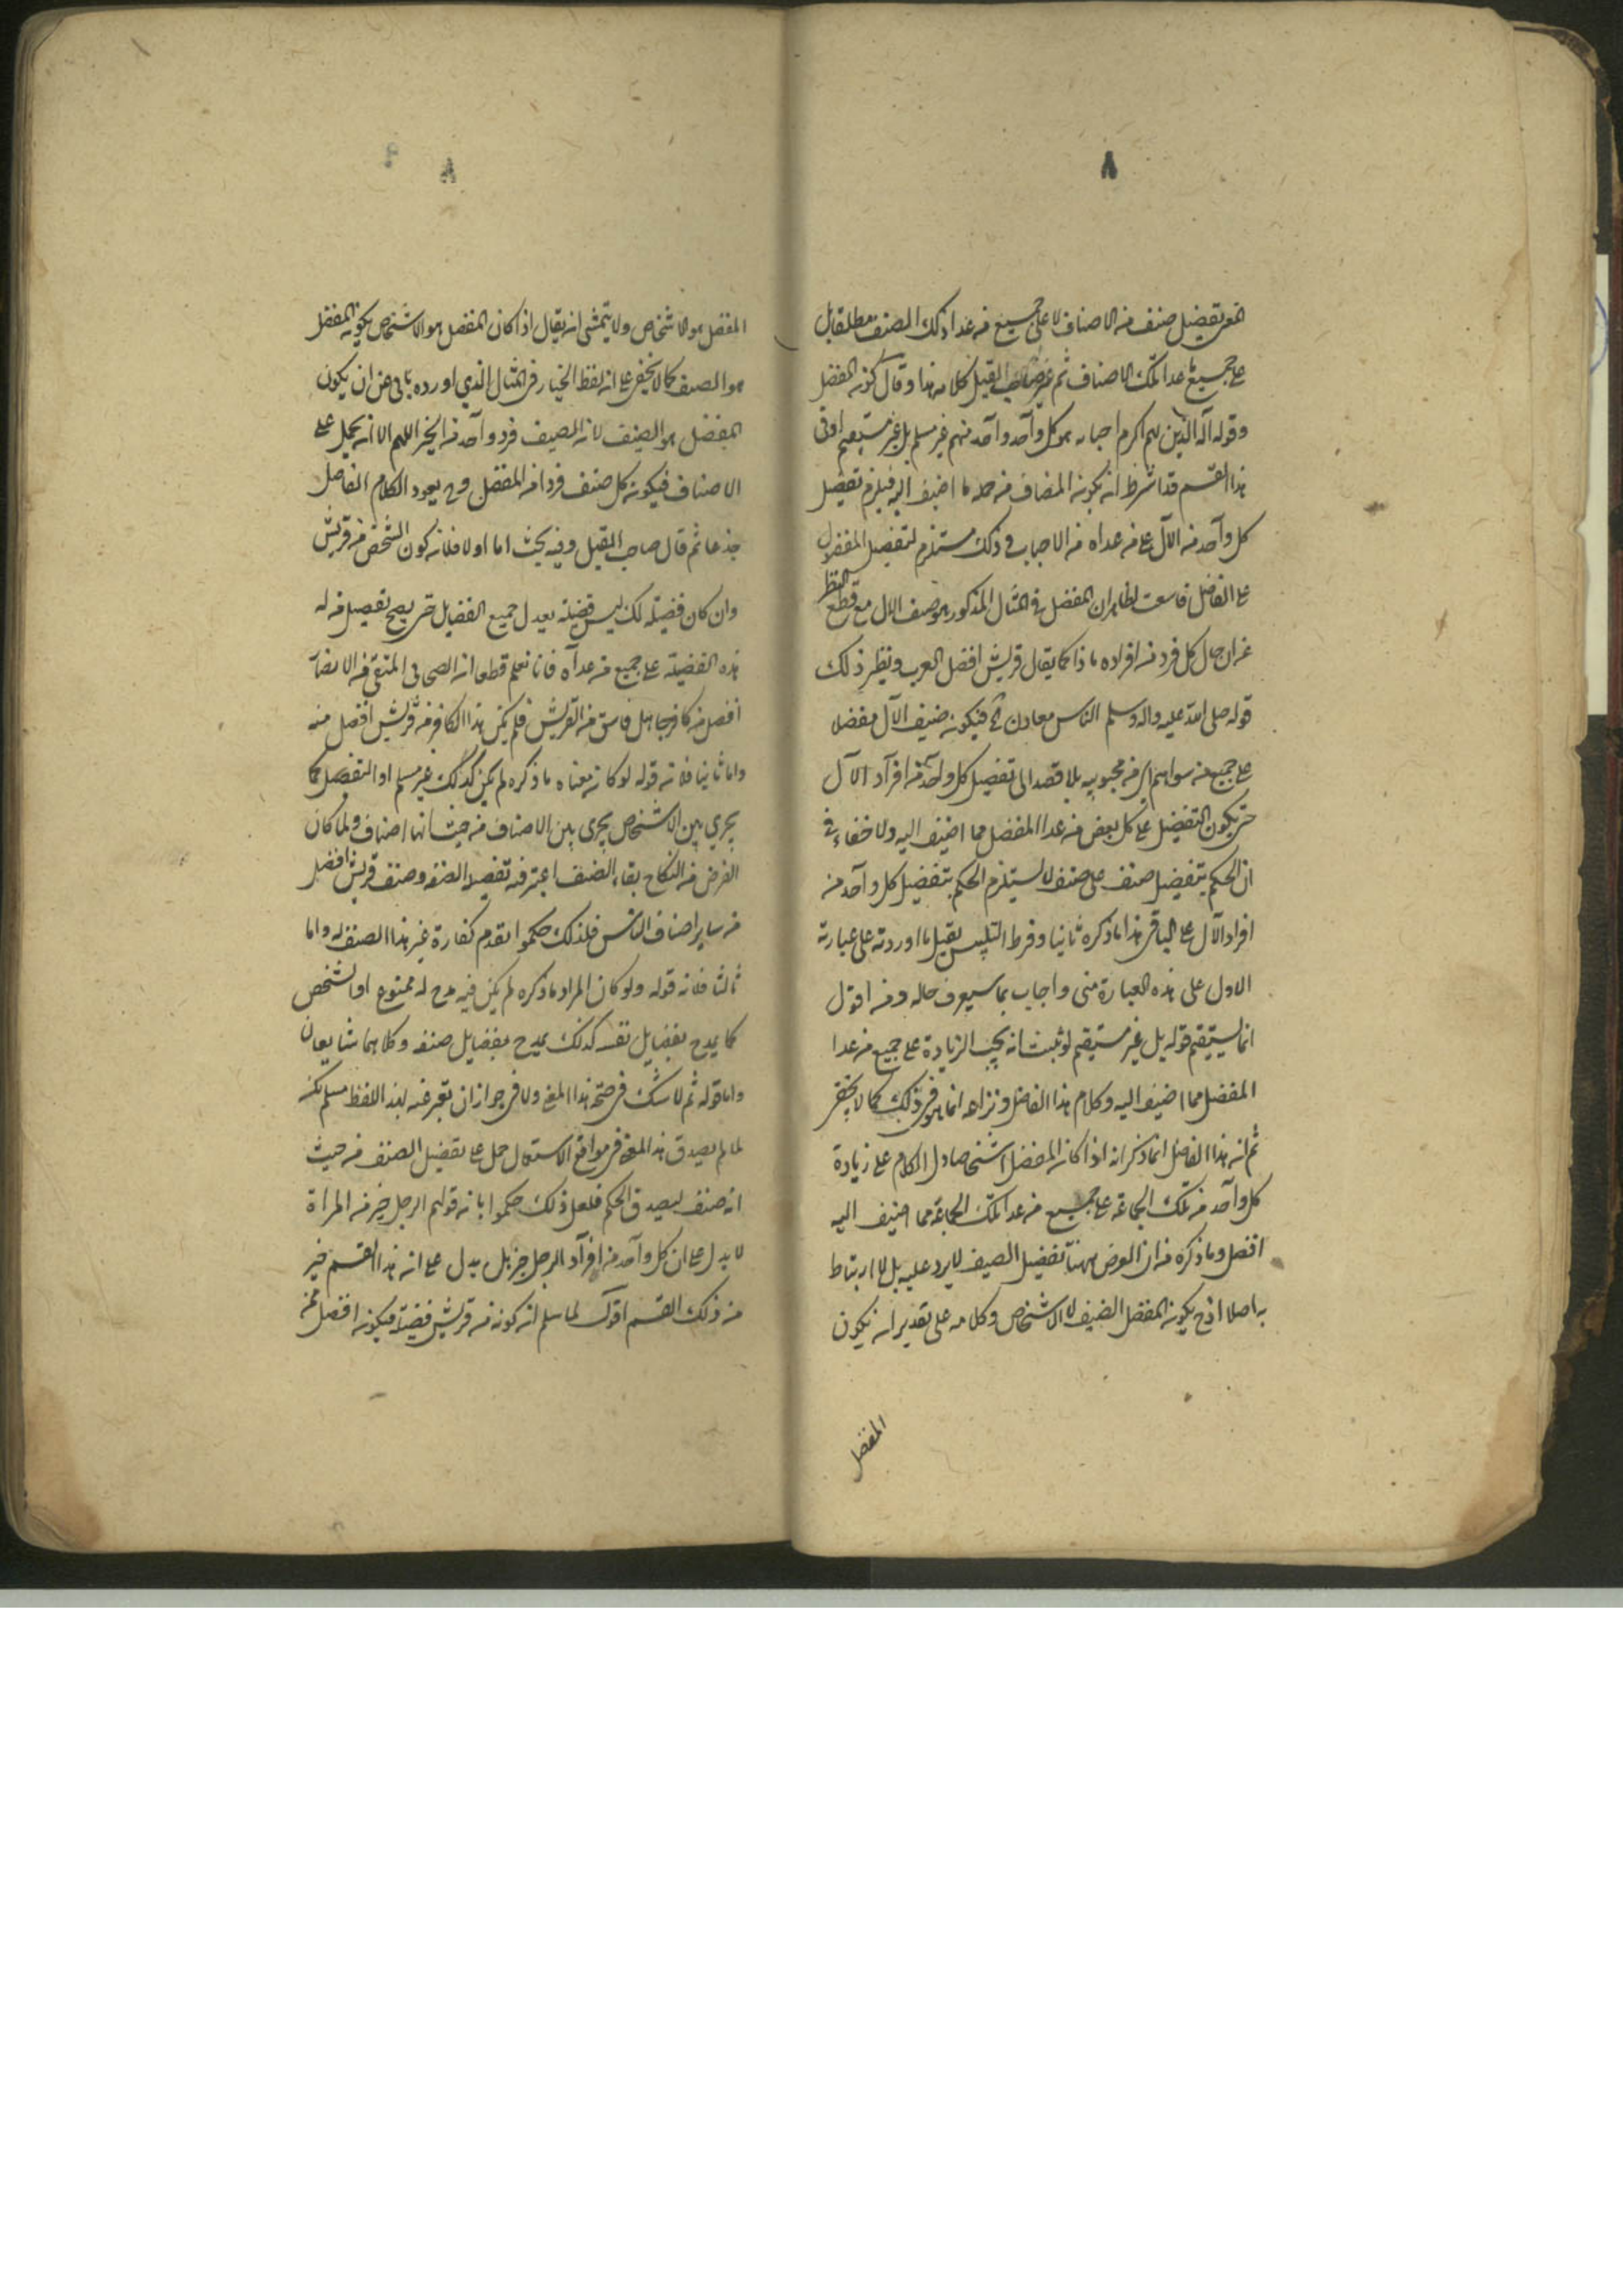 ٨
تفضيل صنف من الاصناف لا على جميع من عدا ذلك الصنف مطلقا بل
على جميع ما عدا تلك الاصناف ثم صاحب القيل كلامه هذا وقال كون المفضل
وقوله آله الذين هم اكرم احبابه هو كل واحد واحد منهم غير مسلم بل غير مستقيم
هذا القسم قد اشترط ان يكون المضاف من جملة ما اضيف اليه فيلزم تفضيل
كل واحد من الآل على من عداه من الاحباب وذلك مستلزم لتفضيل المفضول
على الفاضل الظاهر ان المفضل في المثال المذكور هو صنف الال مع قطع النظر
عن ان حال كل فرد من افراده ماذا كما يقال قريش افضل العرب ونظير ذلك
قوله صلى الله عليه واله وسلم الناس معادن فيكون صنف الآل مفضلا
على جميع من سواهم من محبوبيه بلا قصد الى تفضيل كل واحد من افراد الآل
حتى يكون التفضيل على كل بعض من عدا المفضل مما اضيف اليه ولا خفاء في
ان الحكم بتفضيل صنف على صنف لا يستلزم الحكم بتفضيل كل واحد من
افراد الآل على الباقي هذا ما ذكره ثانيا وفرط التلبيس بقيل ما اوردته على عبارته
الاول على هذه العبارة مني واجاب بما سيعرف حاله ومنه اقول
انما يستقيم قوله بل غير مستقيم لو ثبت انه يجب الزيادة على جميع من عدا
المفضل مما اضيف اليه وكلام هذا الفاضل ونزاعه انما هو في ذلك كما لا يخفى
ثم ان هذا الفاضل انما ذكر انه اذا كان المفضل اشخاصا دل الكلام على زيادة
كل واحد من تلك الجماعة على جميع من عدا تلك الجماعة مما اضيف اليه
افضل وما ذكره من ان الغرض ههنا تفضيل الصنف لا يرد عليه بل لا ارتباط
به اصلا اذ ح يكون المفضل الصنف لا الاشخاص وكلامه على تقدير ان يكون
المفضل
٨
المفضل هو الاشخاص ولا يتمشى ان يقال اذا كان المفضل هو الاشخاص يكون المفضل
هو الصنف كما لا يخفى على ان لفظ الخيار في المثال الذي اورده يابى عن ان يكون
المفضل هو الصنف لان الصنف فرد واحد من الخير اللهم الا ان يحمل على
الاصناف فيكون كل صنف فردا من المفضل وح يعود الكلام الفاضل
جذعا ثم قال صاحب القيل وفيه بحث اما اولا فلان كون الشخص من قريش
وان كان فضيلة لكن ليس فضيلة يعدل جميع الفضايل حتى يصح تفضيل من له
هذه الفضيلة على جميع من عداه فانا نعلم قطعا ان الصحابي المتقي من الانصار
افضل من كافر جاهل فاسق من القريش فلم يكن هذا الكافر من قريش افضل منه
واما ثانيا فلان قوله لو كان معناه ما ذكره لم يكن كذلك غير مسلم اذ التفضيل كما
يجري بين الاشخاص يجري بين الاصناف من حيث انها اصناف ولما كان
الغرض من النكاح بقاء الصنف اعتبر فيه تفضيل الصنف وصنف قريش افضل
من ساير اصناف الناس فلذلك حكموا بعدم كفاءة غير هذا الصنف له واما
ثالثا فلان قوله ولو كان المراد ما ذكره لم يكن فيه مدح له ممنوع اذ الشخص
كما يمدح بفضايل نفسه كذلك يمدح بفضايل صنفه وكلاهما شايعان
واما قوله ثم لا شك في صحة هذا المعنى ولا في جواز ان يعبر عنه بهذا اللفظ مسلم لكنه
لما لم يصدق هذا المعنى في مواقع الاستعمال حمل على تفضيل الصنف من حيث
انه صنف ليصدق الحكم فلعل ذلك حكموا بان قولهم الرجل خير من المراة
لا يدل على ان كل واحد من افراد الرجل خير بل يدل على ان هذا القسم خير
من ذلك القسم اقول لما سلم ان كونه من قريش فضيلة فيكون افضل ممن